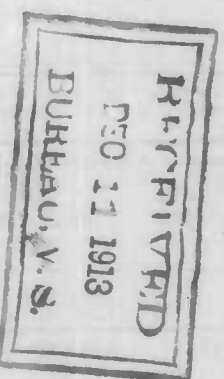 RECEIVED
DEC 11 1913
BUREAU. V. S.